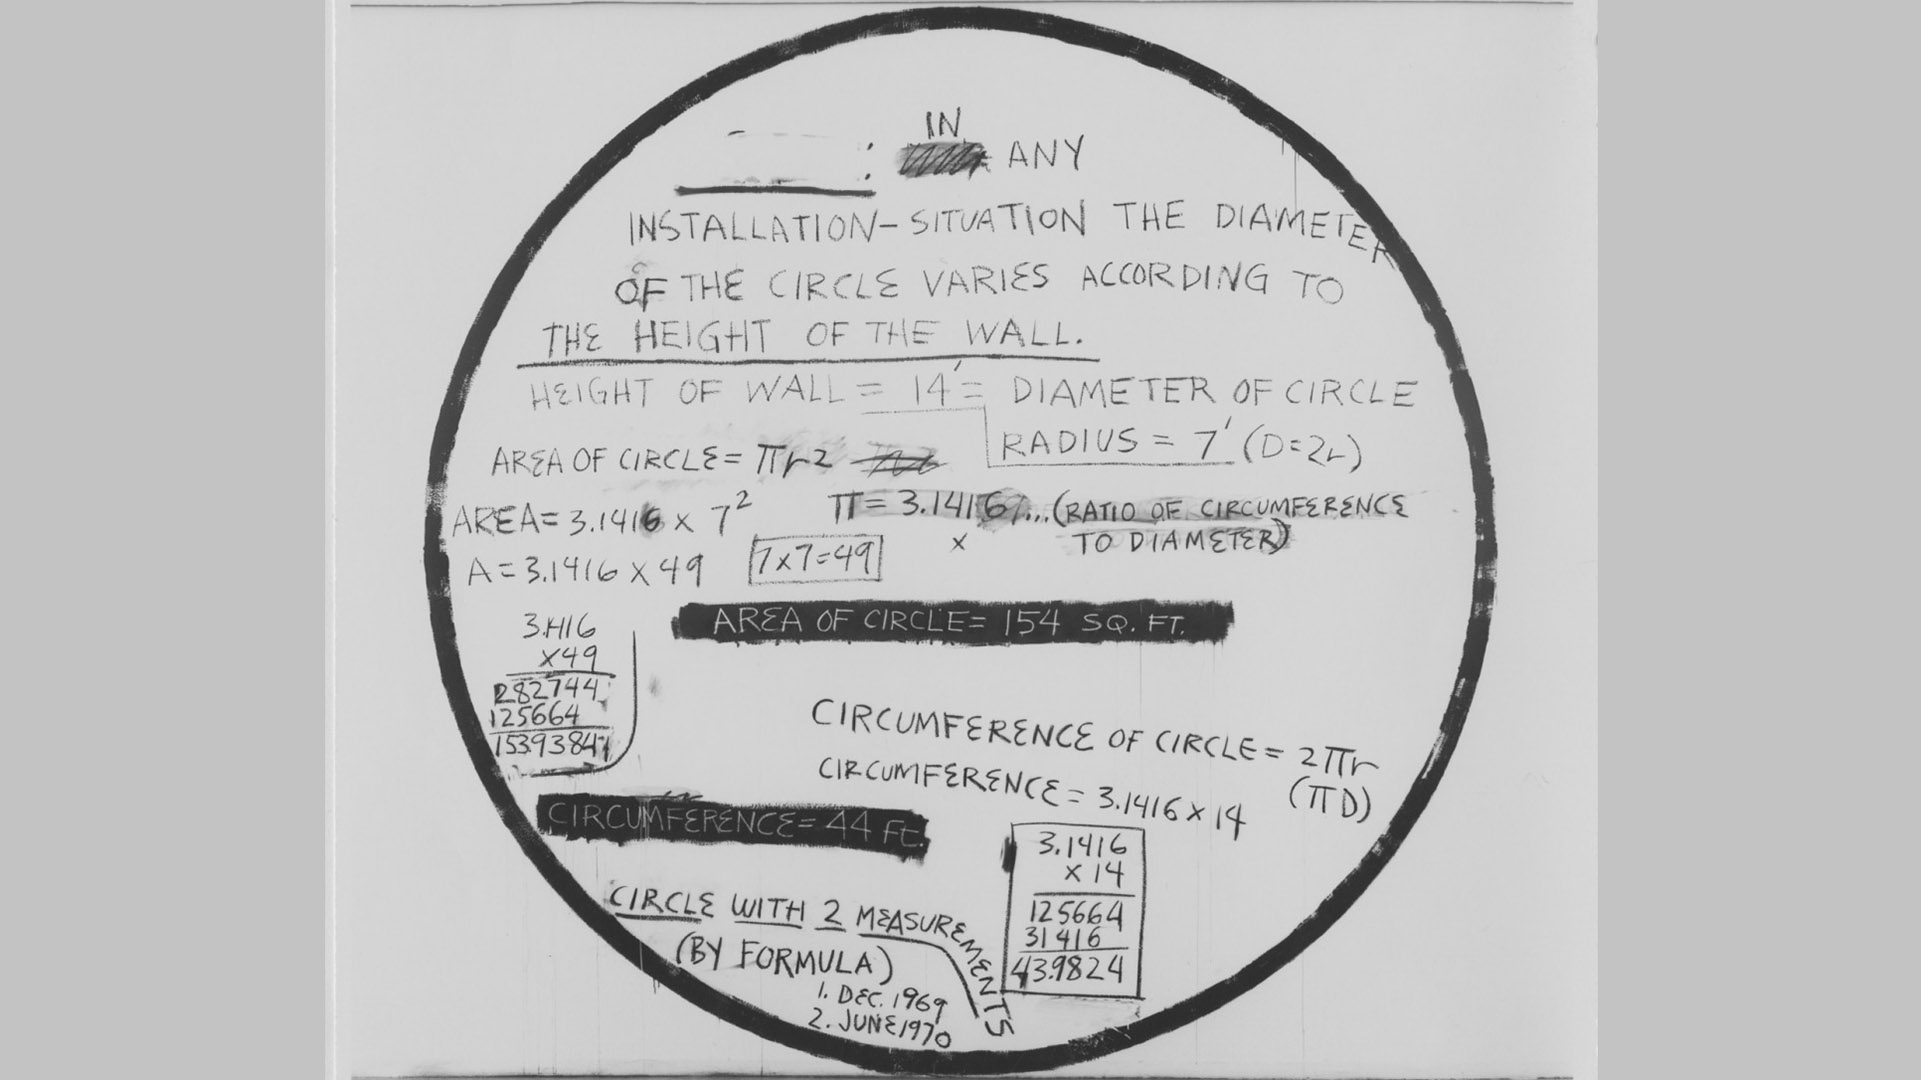 : IN ANY
INSTALLATION-SITUATION THE DIAMETER
OF THE CIRCLE VARIES ACCORDING TO
THE HEIGHT OF THE WALL.
HEIGHT OF WALL = 14' = DIAMETER OF CIRCLE
RADIUS = 7' (D=2r)
AREA OF CIRCLE = πr2
π = 3.1416... (RATIO OF CIRCUMFERENCE
TO DIAMETER)
x
AREA = 3.1416 x 7²
A = 3.1416 x 49
7x7=49
AREA OF CIRCLE = 154 SQ. FT.
3.1416
x49
282744
125664
153.9384
CIRCUMFERENCE OF CIRCLE = 2πr
(πD)
CIRCUMFERENCE = 3.1416 x 14
CIRCUMFERENCE = 44 FT.
3.1416
x 14
125664
31416
43.9824
CIRCLE WITH 2 MEASUREMENTS
(BY FORMULA)
1. DEC. 1969
2. JUNE 1970